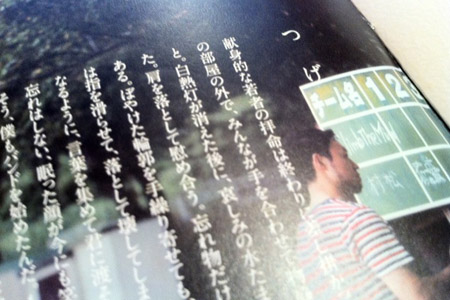 つげ
献身的な若者の拝命は終わり
の部屋の外で、みんなが手を合わせて
と。白熱灯が消えた後に、哀しみの水た
た。肩を落として慰め合う。忘れ物だけ
ある。ぼやけた輪郭を手繰り寄せても
は指を滑らせて、落として壊してしま
なるように、言葉を集めて君に渡そ
忘れはしない、眠った顔が今にも笑
そう、僕もバンドを始めたんだ
チーム名 1 2